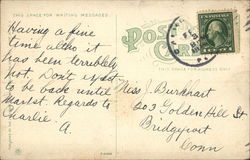 THIS SPACE FOR WRITING MESSAGES
POST
THIS SPACE FOR ADDRESS ONLY
Having a fine
time altho it
has been terribly
hot. Don't expect
to be back until
Regards to
Charlie. A.
Miss J. Burkhart
203 Golden Hill St
Bridgeport
Conn